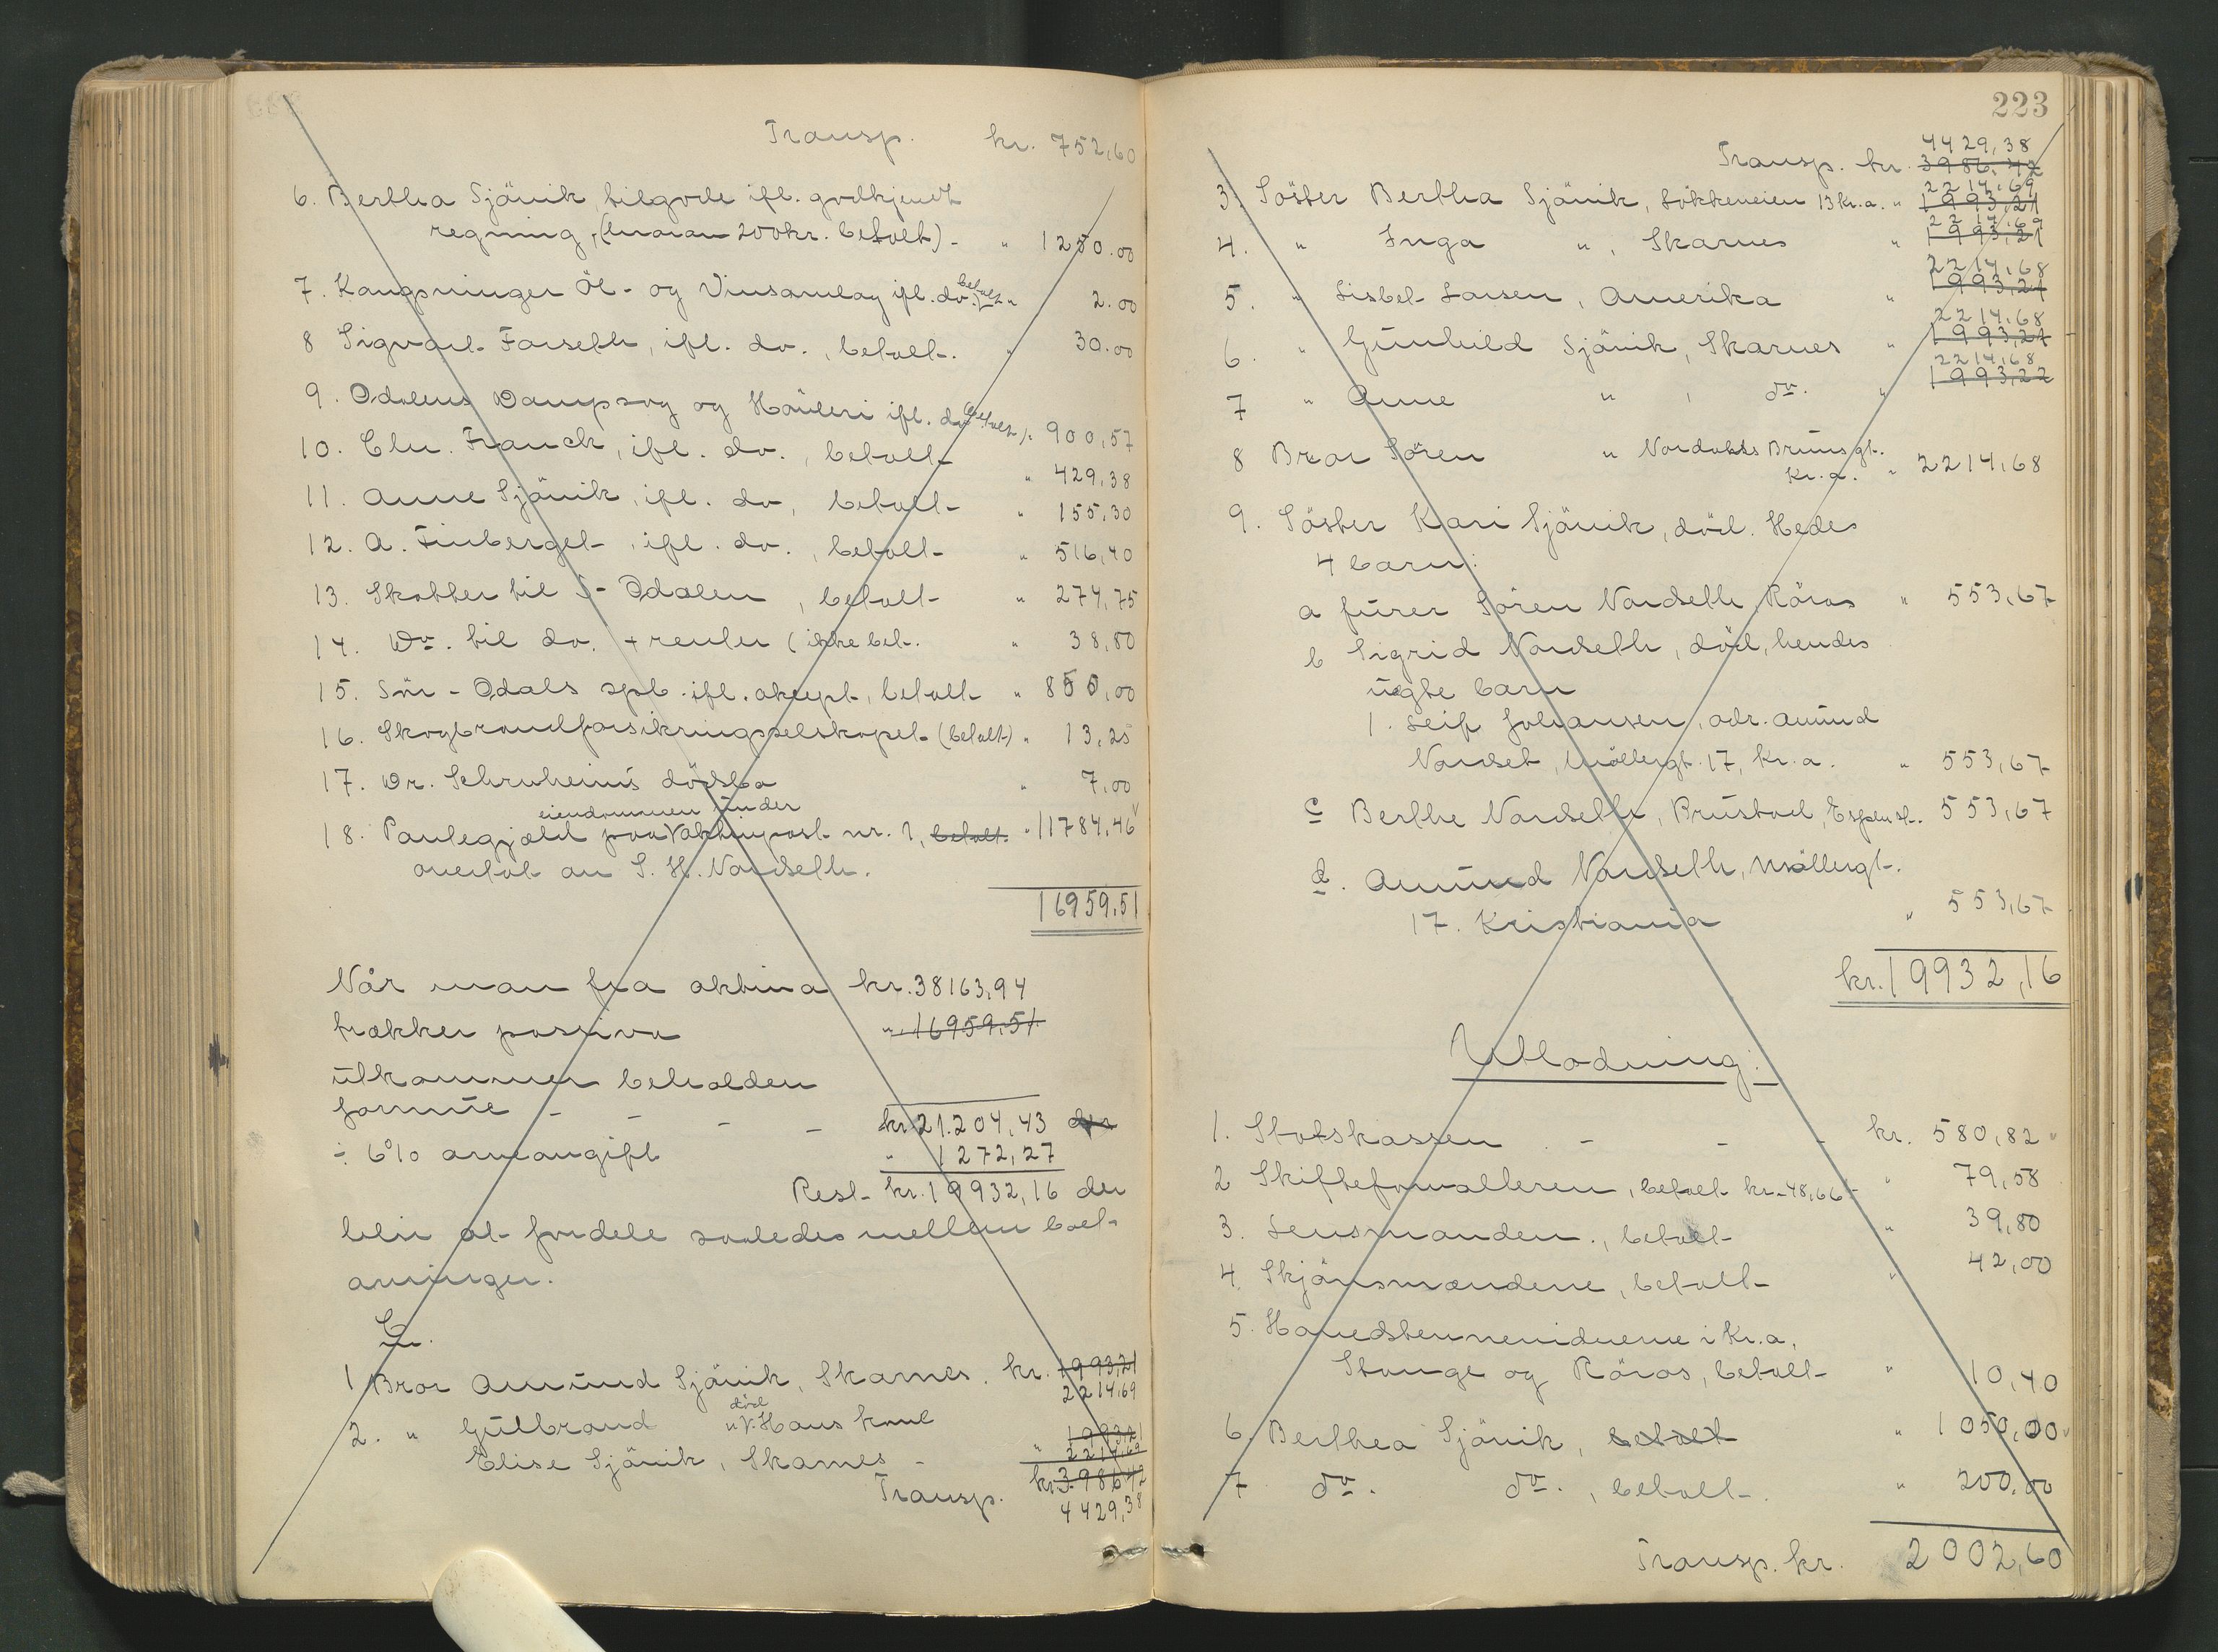 Transp. kr. 752,60
6. Berthea Sjånik, tilgode ifl. godkjendt
regning, (hvorav 200 kr. betalt) - " 1250.00
7. Kongsvinger Öl- og Vinsamlag ifl. do. betalt " 2.00
8 Sigvart Farseth, ifl. do., betalt. " 30.00
9. Odalens Dampsag og Høvleri ifl. do (betalt) " 900,57
10. Chr. Franck, ifl. do., betalt " 429,38
11. Anne Sjånik, ifl. do, betalt - " 155,30
12. A. Finberget, ifl. do., betalt - " 516,40
13. Skatter til S- Odalen, betalt - " 274,75
14. Do. til do. + renter (ikke bet. " 38,80
15. Sør-Odals spb. ifl. aksept, betalt " 855,00
16. Skogbrandforsikringsselskapet (betalt) " 13,25
17. Dr. Schruheims dødsbo " 7,00
eiendommen under
18. Pantegjæld paa aktivapost nr. 1, betalt. " 11784,46
overtat av S. H. Nordseth.
16959,51
Når man fra aktiva kr. 38163,94
trækker passiva " 16959,51
utkommer beholden
formue - - - - kr. 21.204,43 der
÷ 6% arveavgift " 1272,27
Rest kr. 19932,16 der
blir at fordele saaledes mellem boets
arvinger.
C.
1 Bror Amund Sjånik, Skarnes. kr. 1993,21
2214,69
død
2. " Gulbrand " v. Hans kone 1993,21
Elise Sjånik, Skarnes - " 2214,69
kr. 3986,42
Transp. 4429,38
223
4429,38
Transp. kr. 3986,42
2214,69
3. Søster Berthea Sjånik, Løkkeveien 13 Kr.a. " 1993,21
2214,69
4. " Inga ", Skarnes " 1993,21
2214,68
5. " Lisbet Larsen, Amerika " 1993,21
2214,68
6. " Gunhild Sjånik, Skarnes " 1993,22
2214,68
7 " Anne " , do. " 1993,22
8 Bror Søren " Nordahls Brunsgt.
Kr.a. " 2214,68
9. Søster Kari Sjånik, död. Hedes
4 barn:
a furer Søren Nordseth, Røros " 553,67
b Sigrid Nordseth, död, hendes
uegte barn
1. Leif Johansen, adr. Amund
Nordset, Møllergt. 17, Kr.a. " 553,67
c Berthe Nordseth, Brustad, Espen st. 553,67
d. Amund Nordseth, Møllergt.
17. Kristiania " 553,67
kr. 19932,16
Utlodning:
1. Statskassen - - - kr. 580,82 "
2 Skifteforvalteren, betalt kr. 48,66 - " 79,58
3. Lensmanden., betalt " 39,80
4. Skjønsmændene, betalt - " 42,00
5. Hovedstevnevidnerne i Kr.a,
Stange og Røros, betalt - " 10,40
6. Berthea Sjånik, betalt " 1050,00
7 do. do., betalt -. " 200,00
Transp. kr. 2002,60